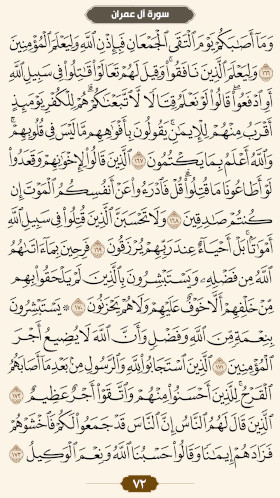 سورة آل عمران
وَمَآ أَصَٰبَكُمْ يَوْمَ ٱلْتَقَى ٱلْجَمْعَانِ فَبِإِذْنِ ٱللَّهِ وَلِيَعْلَمَ ٱلْمُؤْمِنِينَ
١٦٦ وَلِيَعْلَمَ ٱلَّذِينَ نَافَقُوا۟ وَقِيلَ لَهُمْ تَعَالَوْا۟ قَٰتِلُوا۟ فِى سَبِيلِ ٱللَّهِ
أَوِ ٱدْفَعُوا۟ قَالُوا۟ لَوْ نَعْلَمُ قِتَالًا لَّٱتَّبَعْنَٰكُمْ هُمْ لِلْكُفْرِ يَوْمَئِذٍ
أَقْرَبُ مِنْهُمْ لِلْإِيمَٰنِ يَقُولُونَ بِأَفْوَٰهِهِم مَّا لَيْسَ فِى قُلُوبِهِمْ
وَٱللَّهُ أَعْلَمُ بِمَا يَكْتُمُونَ ١٦٧ ٱلَّذِينَ قَالُوا۟ لِإِخْوَٰنِهِمْ وَقَعَدُوا۟
لَوْ أَطَاعُونَا مَا قُتِلُوا۟ قُلْ فَٱدْرَءُوا۟ عَنْ أَنفُسِكُمُ ٱلْمَوْتَ إِن
كُنتُمْ صَٰدِقِينَ ١٦٨ وَلَا تَحْسَبَنَّ ٱلَّذِينَ قُتِلُوا۟ فِى سَبِيلِ ٱللَّهِ
أَمْوَٰتًۢا بَلْ أَحْيَآءٌ عِندَ رَبِّهِمْ يُرْزَقُونَ ١٦٩ فَرِحِينَ بِمَآ ءَاتَىٰهُمُ
ٱللَّهُ مِن فَضْلِهِۦ وَيَسْتَبْشِرُونَ بِٱلَّذِينَ لَمْ يَلْحَقُوا۟ بِهِم
مِّنْ خَلْفِهِمْ أَلَّا خَوْفٌ عَلَيْهِمْ وَلَا هُمْ يَحْزَنُونَ ١٧٠ ۞ يَسْتَبْشِرُونَ
بِنِعْمَةٍ مِّنَ ٱللَّهِ وَفَضْلٍ وَأَنَّ ٱللَّهَ لَا يُضِيعُ أَجْرَ
ٱلْمُؤْمِنِينَ ١٧١ ٱلَّذِينَ ٱسْتَجَابُوا۟ لِلَّهِ وَٱلرَّسُولِ مِنۢ بَعْدِ مَآ أَصَابَهُمُ
ٱلْقَرْحُ لِلَّذِينَ أَحْسَنُوا۟ مِنْهُمْ وَٱتَّقَوْا۟ أَجْرٌ عَظِيمٌ ١٧٢
ٱلَّذِينَ قَالَ لَهُمُ ٱلنَّاسُ إِنَّ ٱلنَّاسَ قَدْ جَمَعُوا۟ لَكُمْ فَٱخْشَوْهُمْ
فَزَادَهُمْ إِيمَٰنًا وَقَالُوا۟ حَسْبُنَا ٱللَّهُ وَنِعْمَ ٱلْوَكِيلُ ١٧٣
٧٢